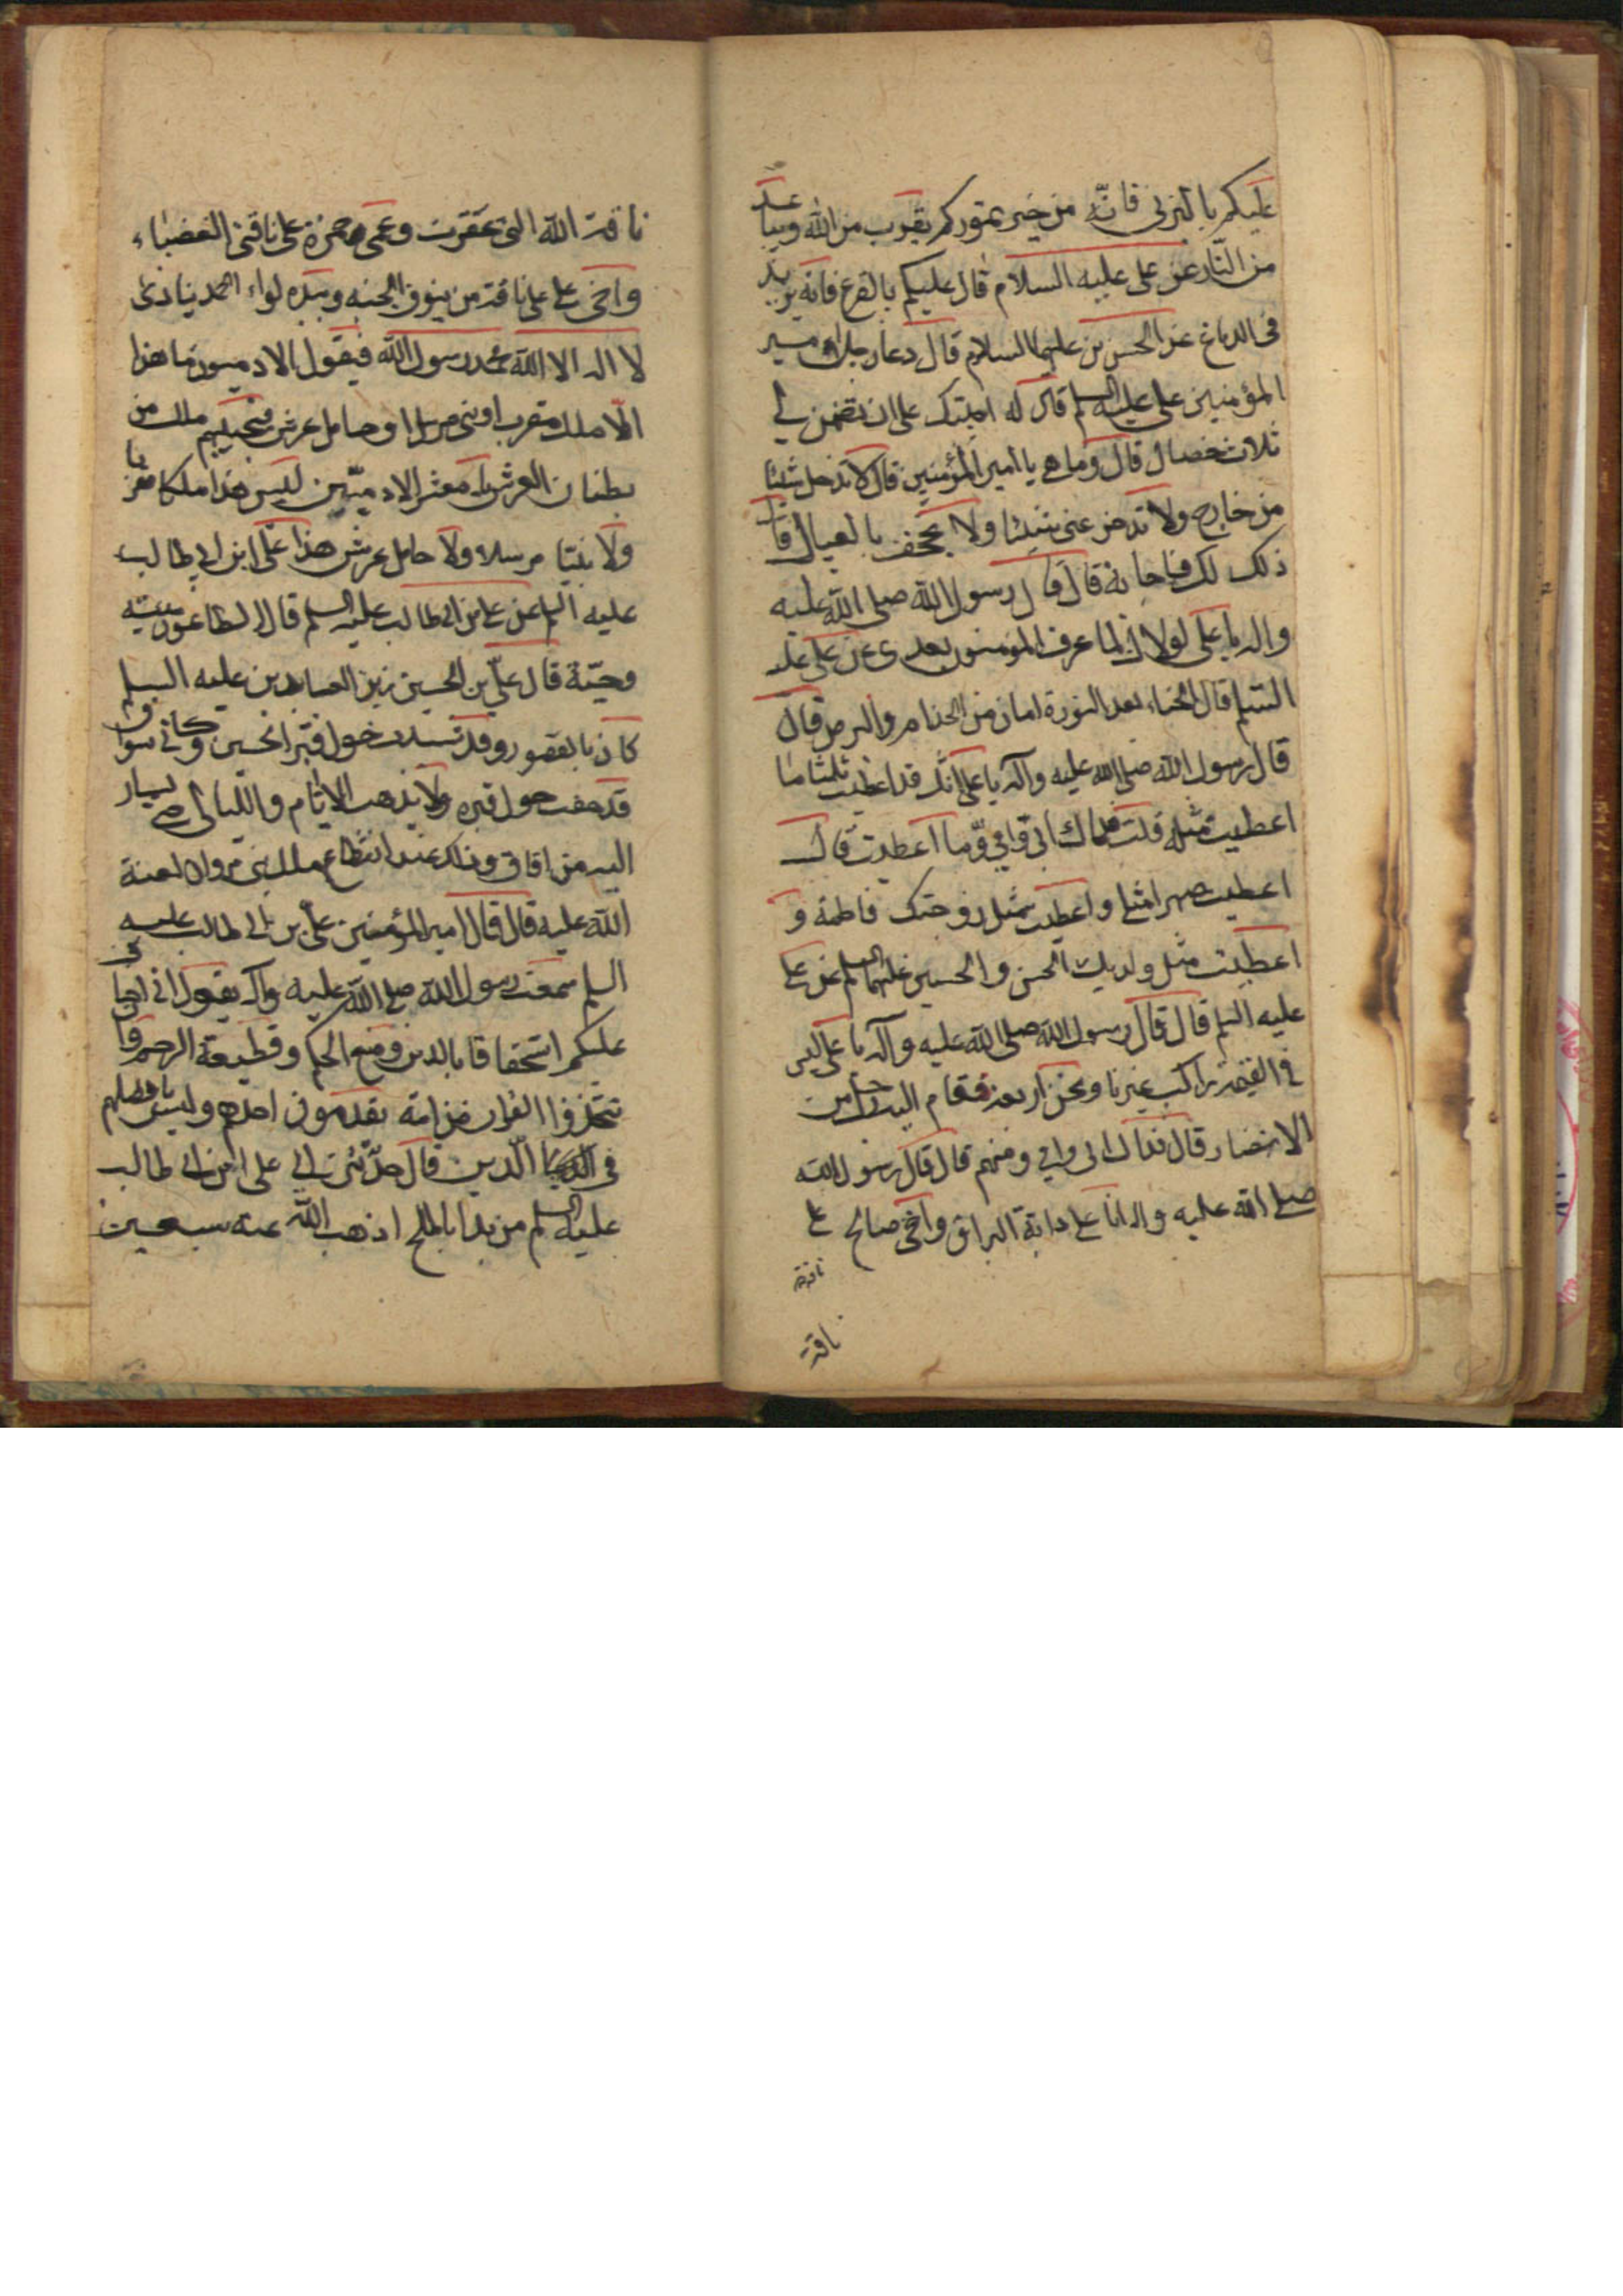 عليكم بالبرنى فانّه من خير تموركم يقرب من الله ويباعد
من النّار عن على عليه السلام قال عليكم بالقرع فانه يزيد
فى الدماغ عن الحسين بن عليهما السلام قال دعا رجل امير
المؤمنين على عليه السلم قال له اجبتك على ان تضمن لي
ثلاث خصال قال وما هى يا امير المؤمنين قال لا تدخل شيئا
من خارج ولا تدخر عنى شيئا ولا تجحف بالعيال قال
ذلك لك فاجابه قال قال رسول الله صلى الله عليه
واله يا على لولاك لما عرف المؤمنون بعدى عن على عليه
السلم قال الحناء بعد النورة امان من الجذام والبرص قال
قال رسول الله صلى الله عليه وآله يا على انّك قد اعطيت ثلثا ما
اعطيت مثله قلت فداك ابى وامى وما اعطيت قال
اعطيت صهرا مثلى واعطيت مثل زوجتك فاطمة و
اعطيت مثل ولديك الحسن والحسين عليهما السلم عن على
عليه السلم قال قال رسول الله صلى الله عليه وآله يا على ليس
فى القيمة راكب غيرنا ونحن اربعة فقام اليه رجل من
الانصار قال فداك ابى وامى ومنهم قال قال رسول الله
صلى الله عليه واله انا على دابة البراق واخى صالح على
ناقة
ناقة
ناقة الله التى عقرت وعمى حمزة على ناقتى الغضباء
واخى على على ناقة من نوق الجنه وبيده لواء الحمد ينادى
لا اله الا الله محمد رسول الله فيقول الادميون ما هذا
الّا ملك مقرب او نبى مرسل او حامل عرش فيجيبهم ملك من
بطنان العرش يا معشر الادميّين ليس هذا ملكا مقربا
ولا نبيّا مرسلا ولا حامل عرش هذا على ابن ابي طالب
عليه السلم عن على بن ابى طالب عليه السلم قال الطاعون ميتة
وحيّة قال على بن الحسين زين العابدين عليه السلم
كانى بالقصور وقد شيدت حول قبر الحسين وكانى بالاسواق
قد حفت حول قبره ولا يذهب الايام والليالى حتى يسار
اليه من افاق وذلك عند انقطاع ملك بنى مروان لعنة
الله عليه قال قال امير المؤمنين على بن ابى طالب عليه
السلم سمعت رسول الله صلى الله عليه واله يقول انى اخاف
عليكم استخفافا بالدين ومنع الحكم وقطيعة الرحم وان
تتخذوا القران مزامير تقدمون احدهم وليس بافضلهم
فى الدين قال حدّثنى ابي على ابن ابى طالب
عليه السلم من بدا بالملح اذهب الله عنه سبعين